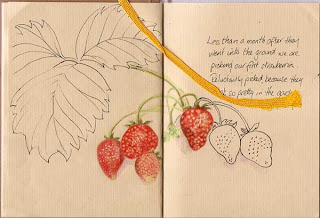 Less than a month after they
went into the ground we are
picking our first strawberries.
Reluctantly picked because they
so pretty in the